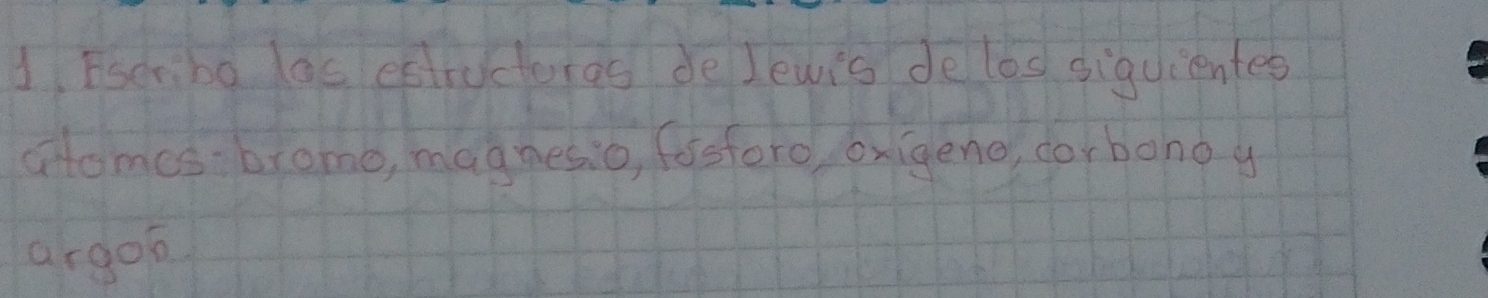 1. Escriba las estructuras de Lewis de los siguientes
átomos: bromo, magnesio, fósforo, oxígeno, carbono y
argón